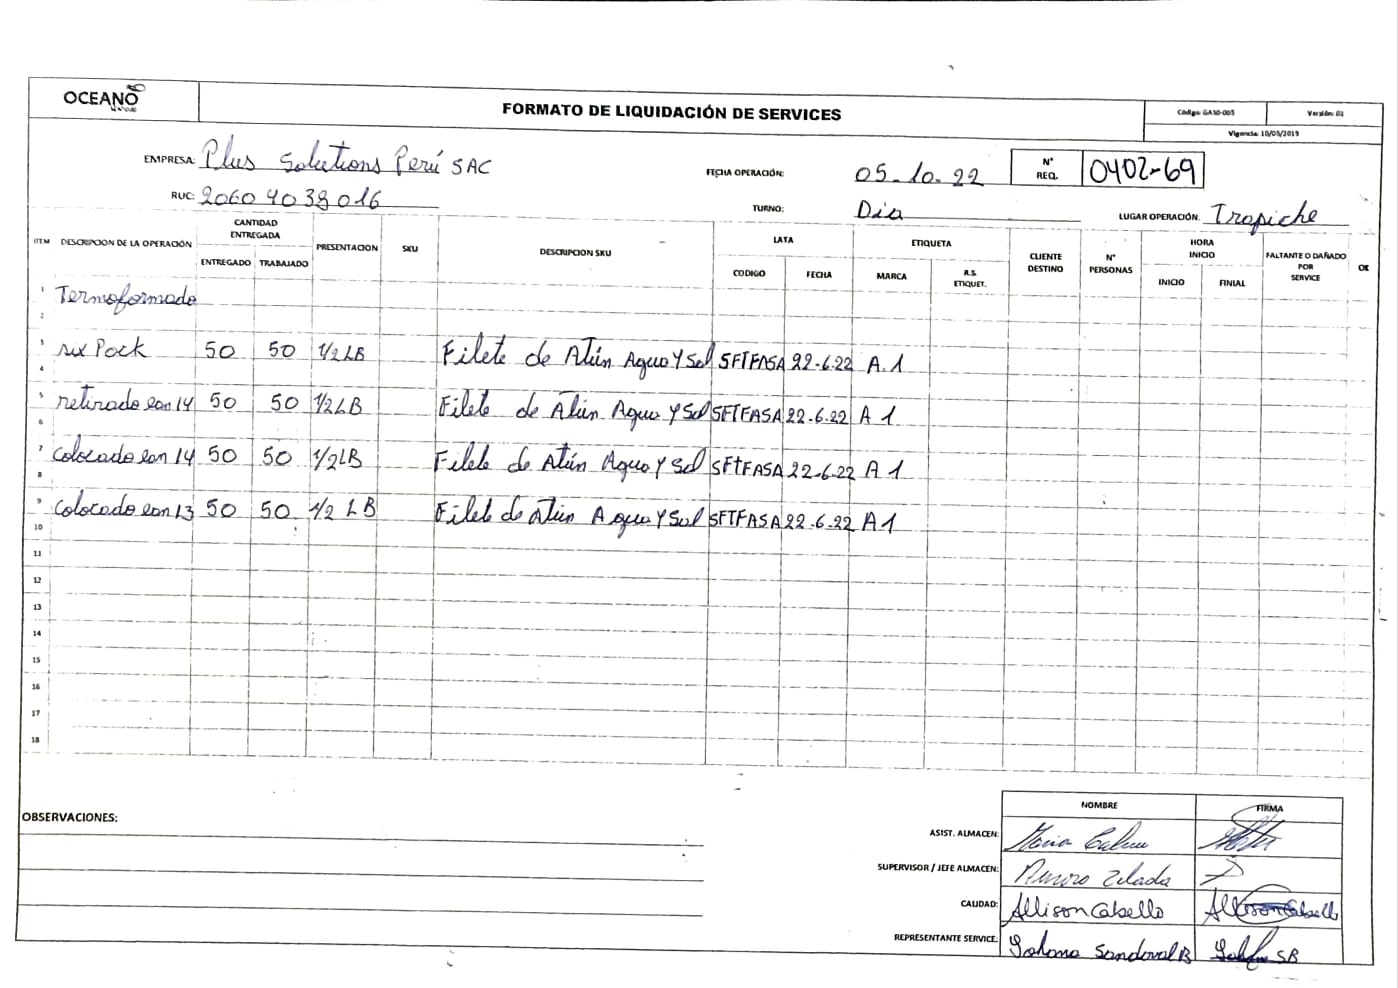 OCEANO
FORMATO DE LIQUIDACIÓN DE SERVICES
Código: GA50-005
Versión: 02
Vigencia: 10/05/2019
EMPRESA: Plus Solutions Perú SAC
FECHA OPERACIÓN: 05-10-22
N° REQ. 0402-69
RUC: 20604039016
TURNO: Dia
LUGAR OPERACIÓN: Trapiche
ITEM DESCRIPCION DE LA OPERACIÓN CANTIDAD ENTREGADA PRESENTACION SKU DESCRIPCION SKU LATA ETIQUETA CLIENTE DESTINO N° PERSONAS HORA INICIO FALTANTE O DAÑADO POR SERVICE
ENTREGADO TRABAJADO CODIGO FECHA MARCA R.S. ETIQUET. INICIO FINIAL
1 Termoformado
2
3 six Pack 50 50 1/2 LB Filete de Atún Agua Y Sal SFTFASA 22-6-22 A.1
4
5 retirado con 14 50 50 1/2 LB Filete de Atún Agua Y Sal SFTFASA 22-6-22 A 1
6
7 colocado con 14 50 50 1/2 LB Filete de Atún Agua Y Sal SFTFASA 22-6-22 A 1
8
9 colocado con 13 50 50 1/2 LB Filete de Atún Agua Y Sal SFTFASA 22-6-22 A 1
10
11
12
13
14
15
16
17
18
OBSERVACIONES:
NOMBRE FIRMA
ASIST. ALMACEN:
SUPERVISOR / JEFE ALMACEN: Zelada
CALIDAD: Allison Cabello Allison Cabello
REPRESENTANTE SERVICE: Sandoval B SB